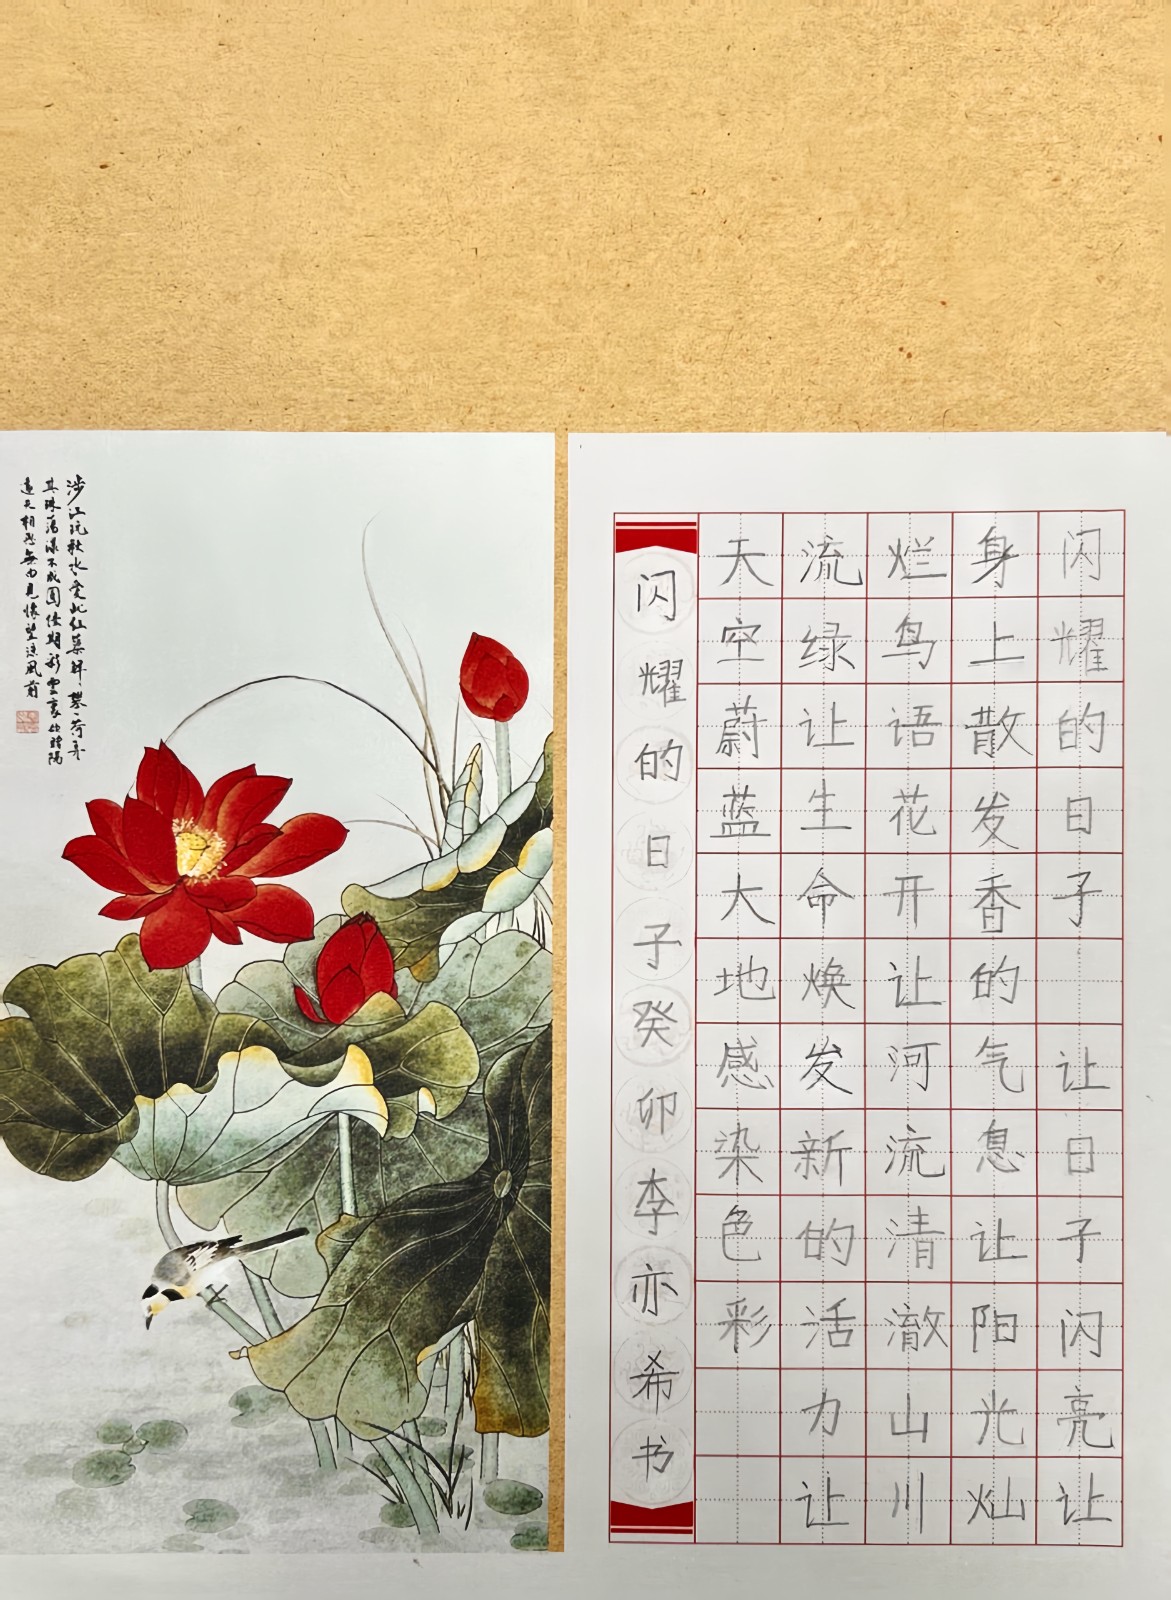 闪耀的日子 让日子闪亮让
身上散发香的气息让阳光灿
烂鸟语花开让河流清澈山川
流绿让生命焕发新的活力让
天空蔚蓝大地感染色彩
闪耀的日子癸卯李亦希书
涉江玩秋水愛此红蕖鲜攀荷弄
其珠荡漾不成圆佳期彩雲裏欲赠隔
遠天相思無由見悵望凉風前